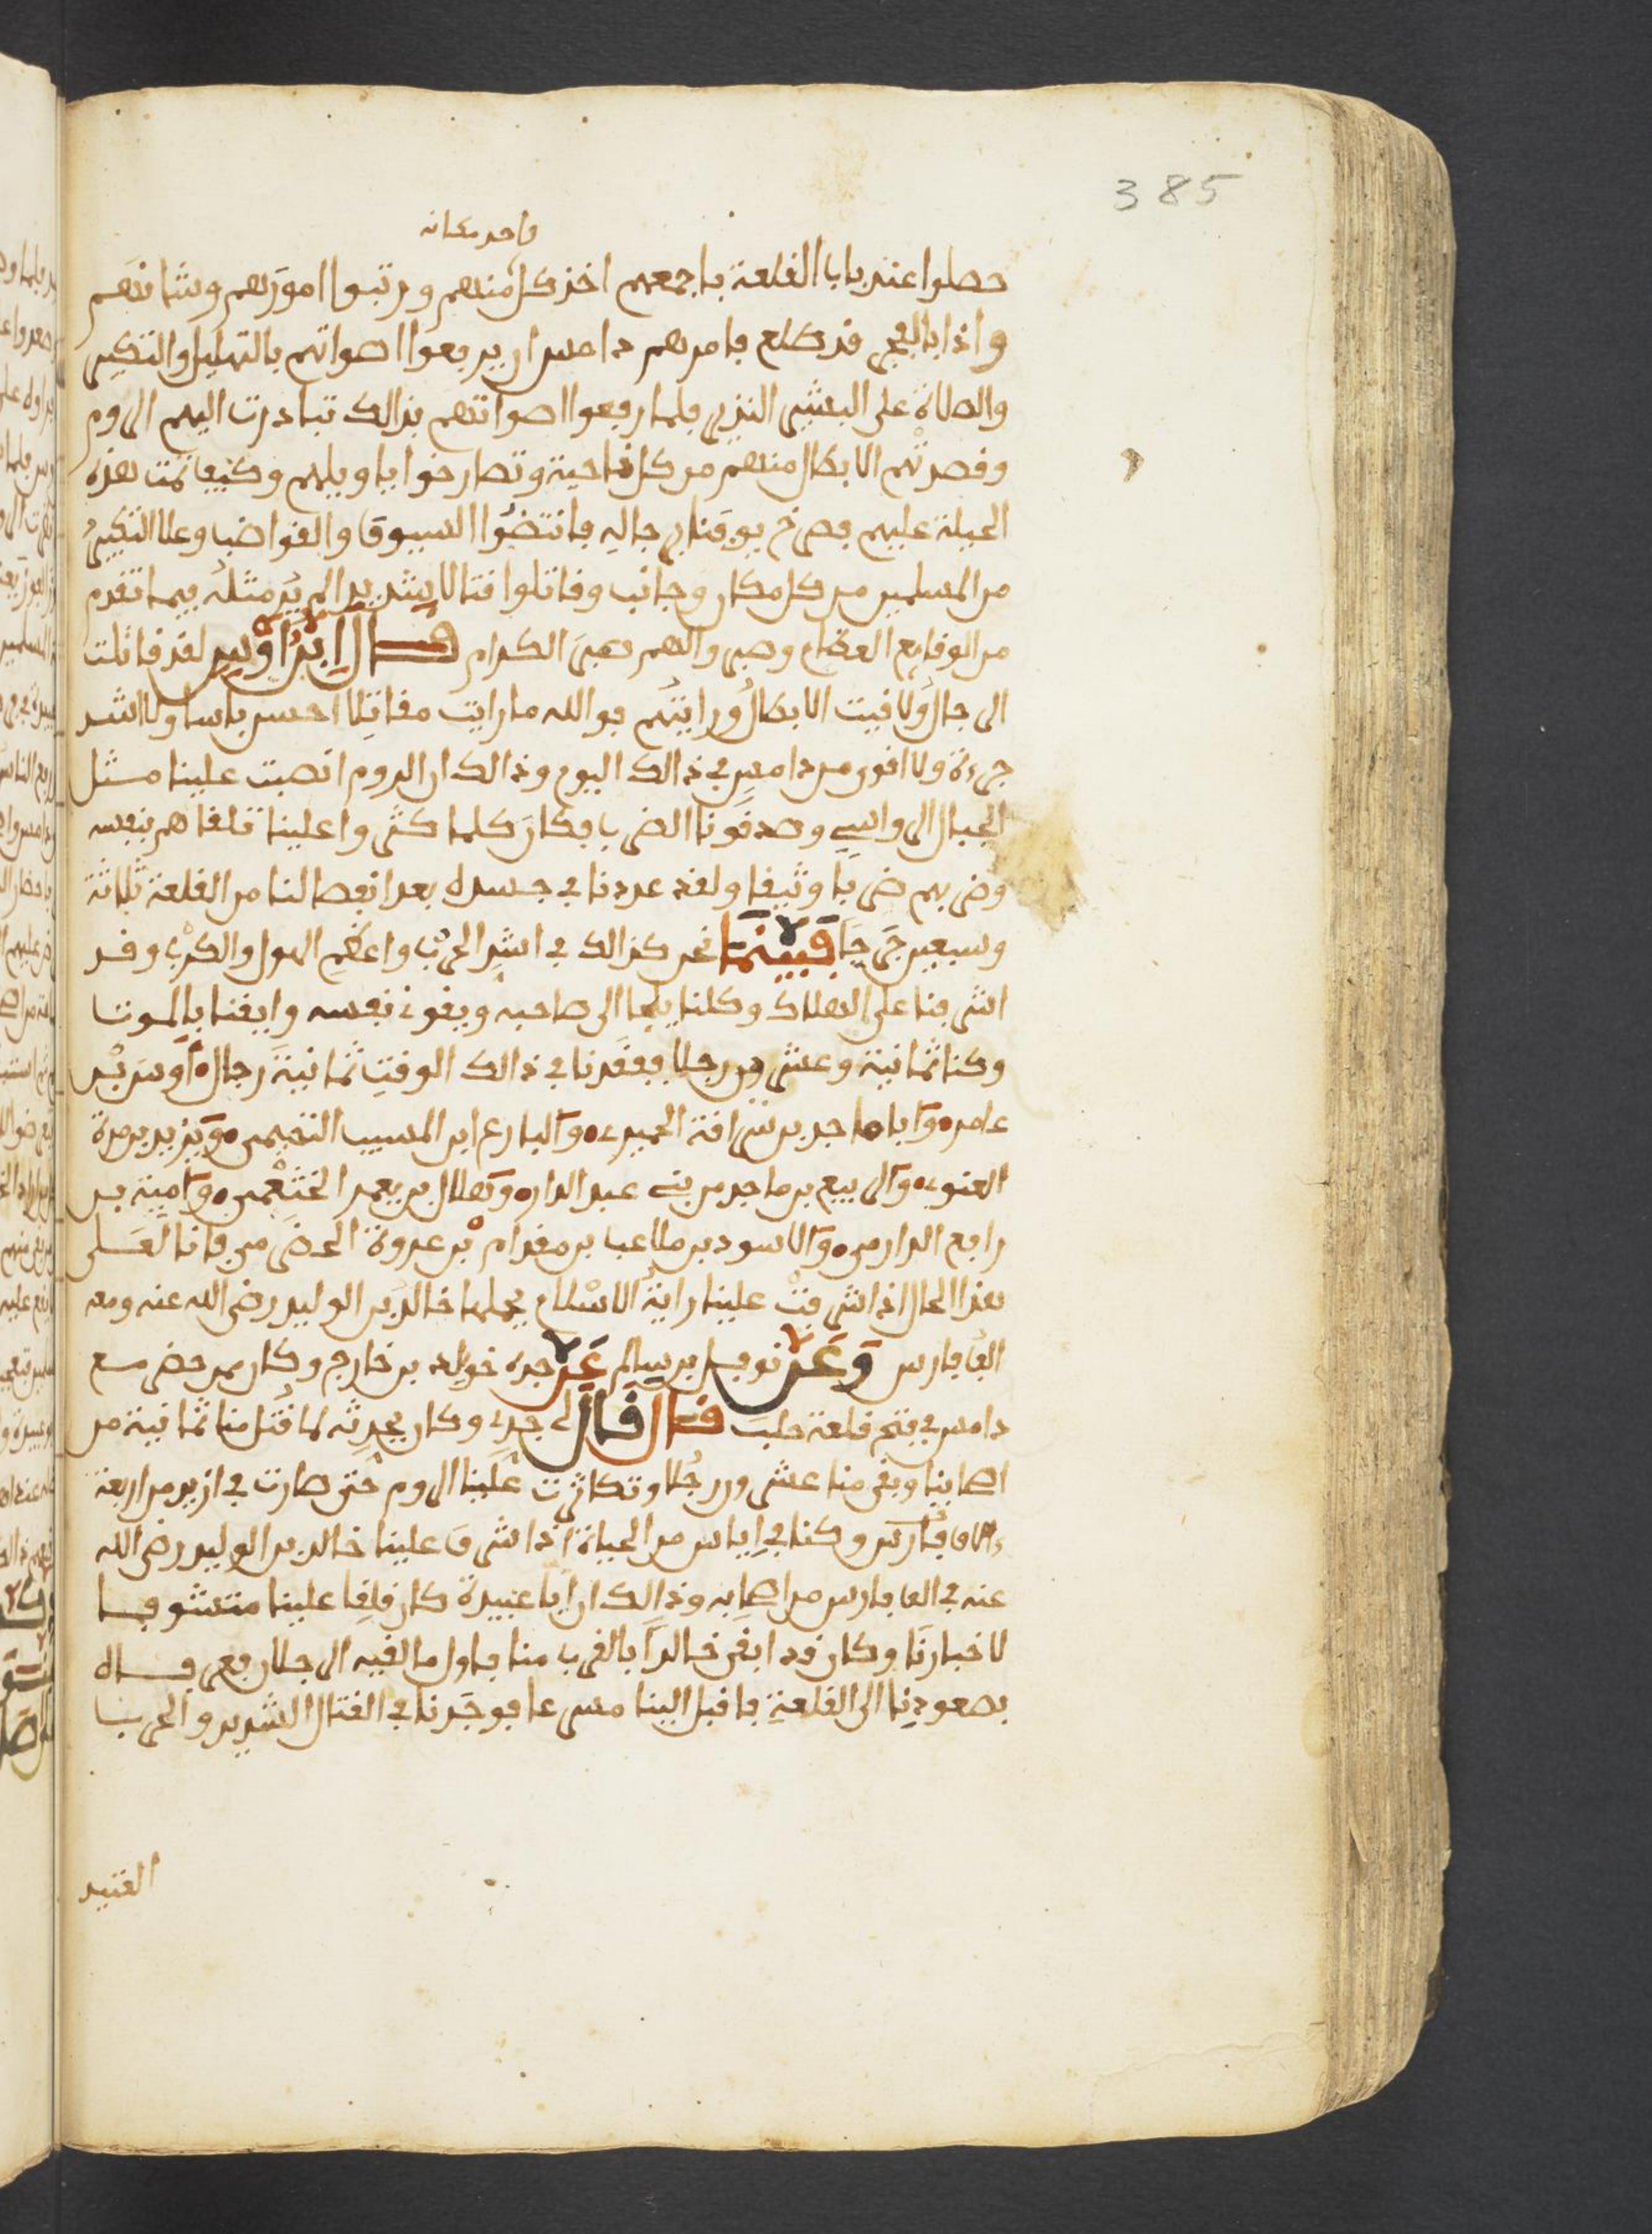 385
واحد مكانه
حصلوا عند باب القلعة باجمعهم اخذ كل منهم ورتبوا امورهم وشانهم
واذا بالفجر قد طلع فامرهم دامس ان يرفعوا اصواتهم بالتهليل والتكبير
والصلاة على البشير النذير فلما رفعوا اصواتهم بذالك تبادرت اليهم الروم
وقصدتهم الابطال منهم من كل ناحية وتصارخوا يا ويلهم وكيف تمت هذه
الحيلة عليهم فصرخ يوقنا برجاله فانتضوا السيوف والقواضب وعلا التكبير
من المسلمين من كل مكان وجانب وقاتلوا قتالا شديدا لم ير مثله فيما تقدم
من الوقايع العظام وصبروا لهم صبر الكرام قال ابن اويس لقد قاتلت
الرجال ولاقيت الابطال ورايتهم فوالله ما رايت مقاتلا احسن باسا ولا اشد
جرءة ولا اقوى من دامس في ذالك اليوم وذالك ان الروم انصبت علينا مثل
الجبال الرواسي وصدقونا الضرب فكان كلما كثروا علينا تلقاهم بنفسه
وضربهم ضربا وثيقا ولقد عددنا في جسده بعد انفصالنا من القلعة ثلاثة
وسبعين جرحا فبينما نحن كذالك في اشد الحرب واعظم الهول والكرب وقد
اشرفنا على الهلاك وكلنا يلجا الى صاحبه ويقوي نفسه وايقنا بالموت
وكنا ثمانية وعشرين رجلا ففقدنا في ذالك الوقت ثمانية رجال اوس بن
عامر وابا ماجد بن سراقة الحميري والبارع ابن المسيب التجيمي ويزيد بن مرة
الغنوي والربيع بن ماجد من بني عبد الدار وهلال بن يعمر الخثعمي وامية بن
رابع الدارمي والاسود بن ملاعب بن مقدام بن عروة الحضرمي فانا لعلى
هذا الحال اذ اشرفت علينا راية الاسلام يحملها خالد بن الوليد رضي الله عنه ومعه
الف فارس وعن نوفل بن سالم عن جده خويلد بن خارج وكان ممن حضر مع
دامس في فتح قلعة حلب قال قال لي جدي وكان يحدثه لما قتل منا ثمانية من
اصحابنا وبقي منا عشرون رجلا وتكاثرت علينا الروم حتى صارت في ازيد من اربعة
الاف فارس وكنا في اياس من الحياة اذ اشرف علينا خالد بن الوليد رضي الله
عنه في الف فارس من اصحابه وذالك ان ابا عبيدة كان قلقا علينا متشوفا
لاخبارنا وكان قد ابقى خالدا بالقرب منا فاول ما لقيه الرجلان فعرفاه
بصعودنا الى القلعة فاقبل الينا مسرعا فوجدنا في القتال الشديد والحرب
العتيد